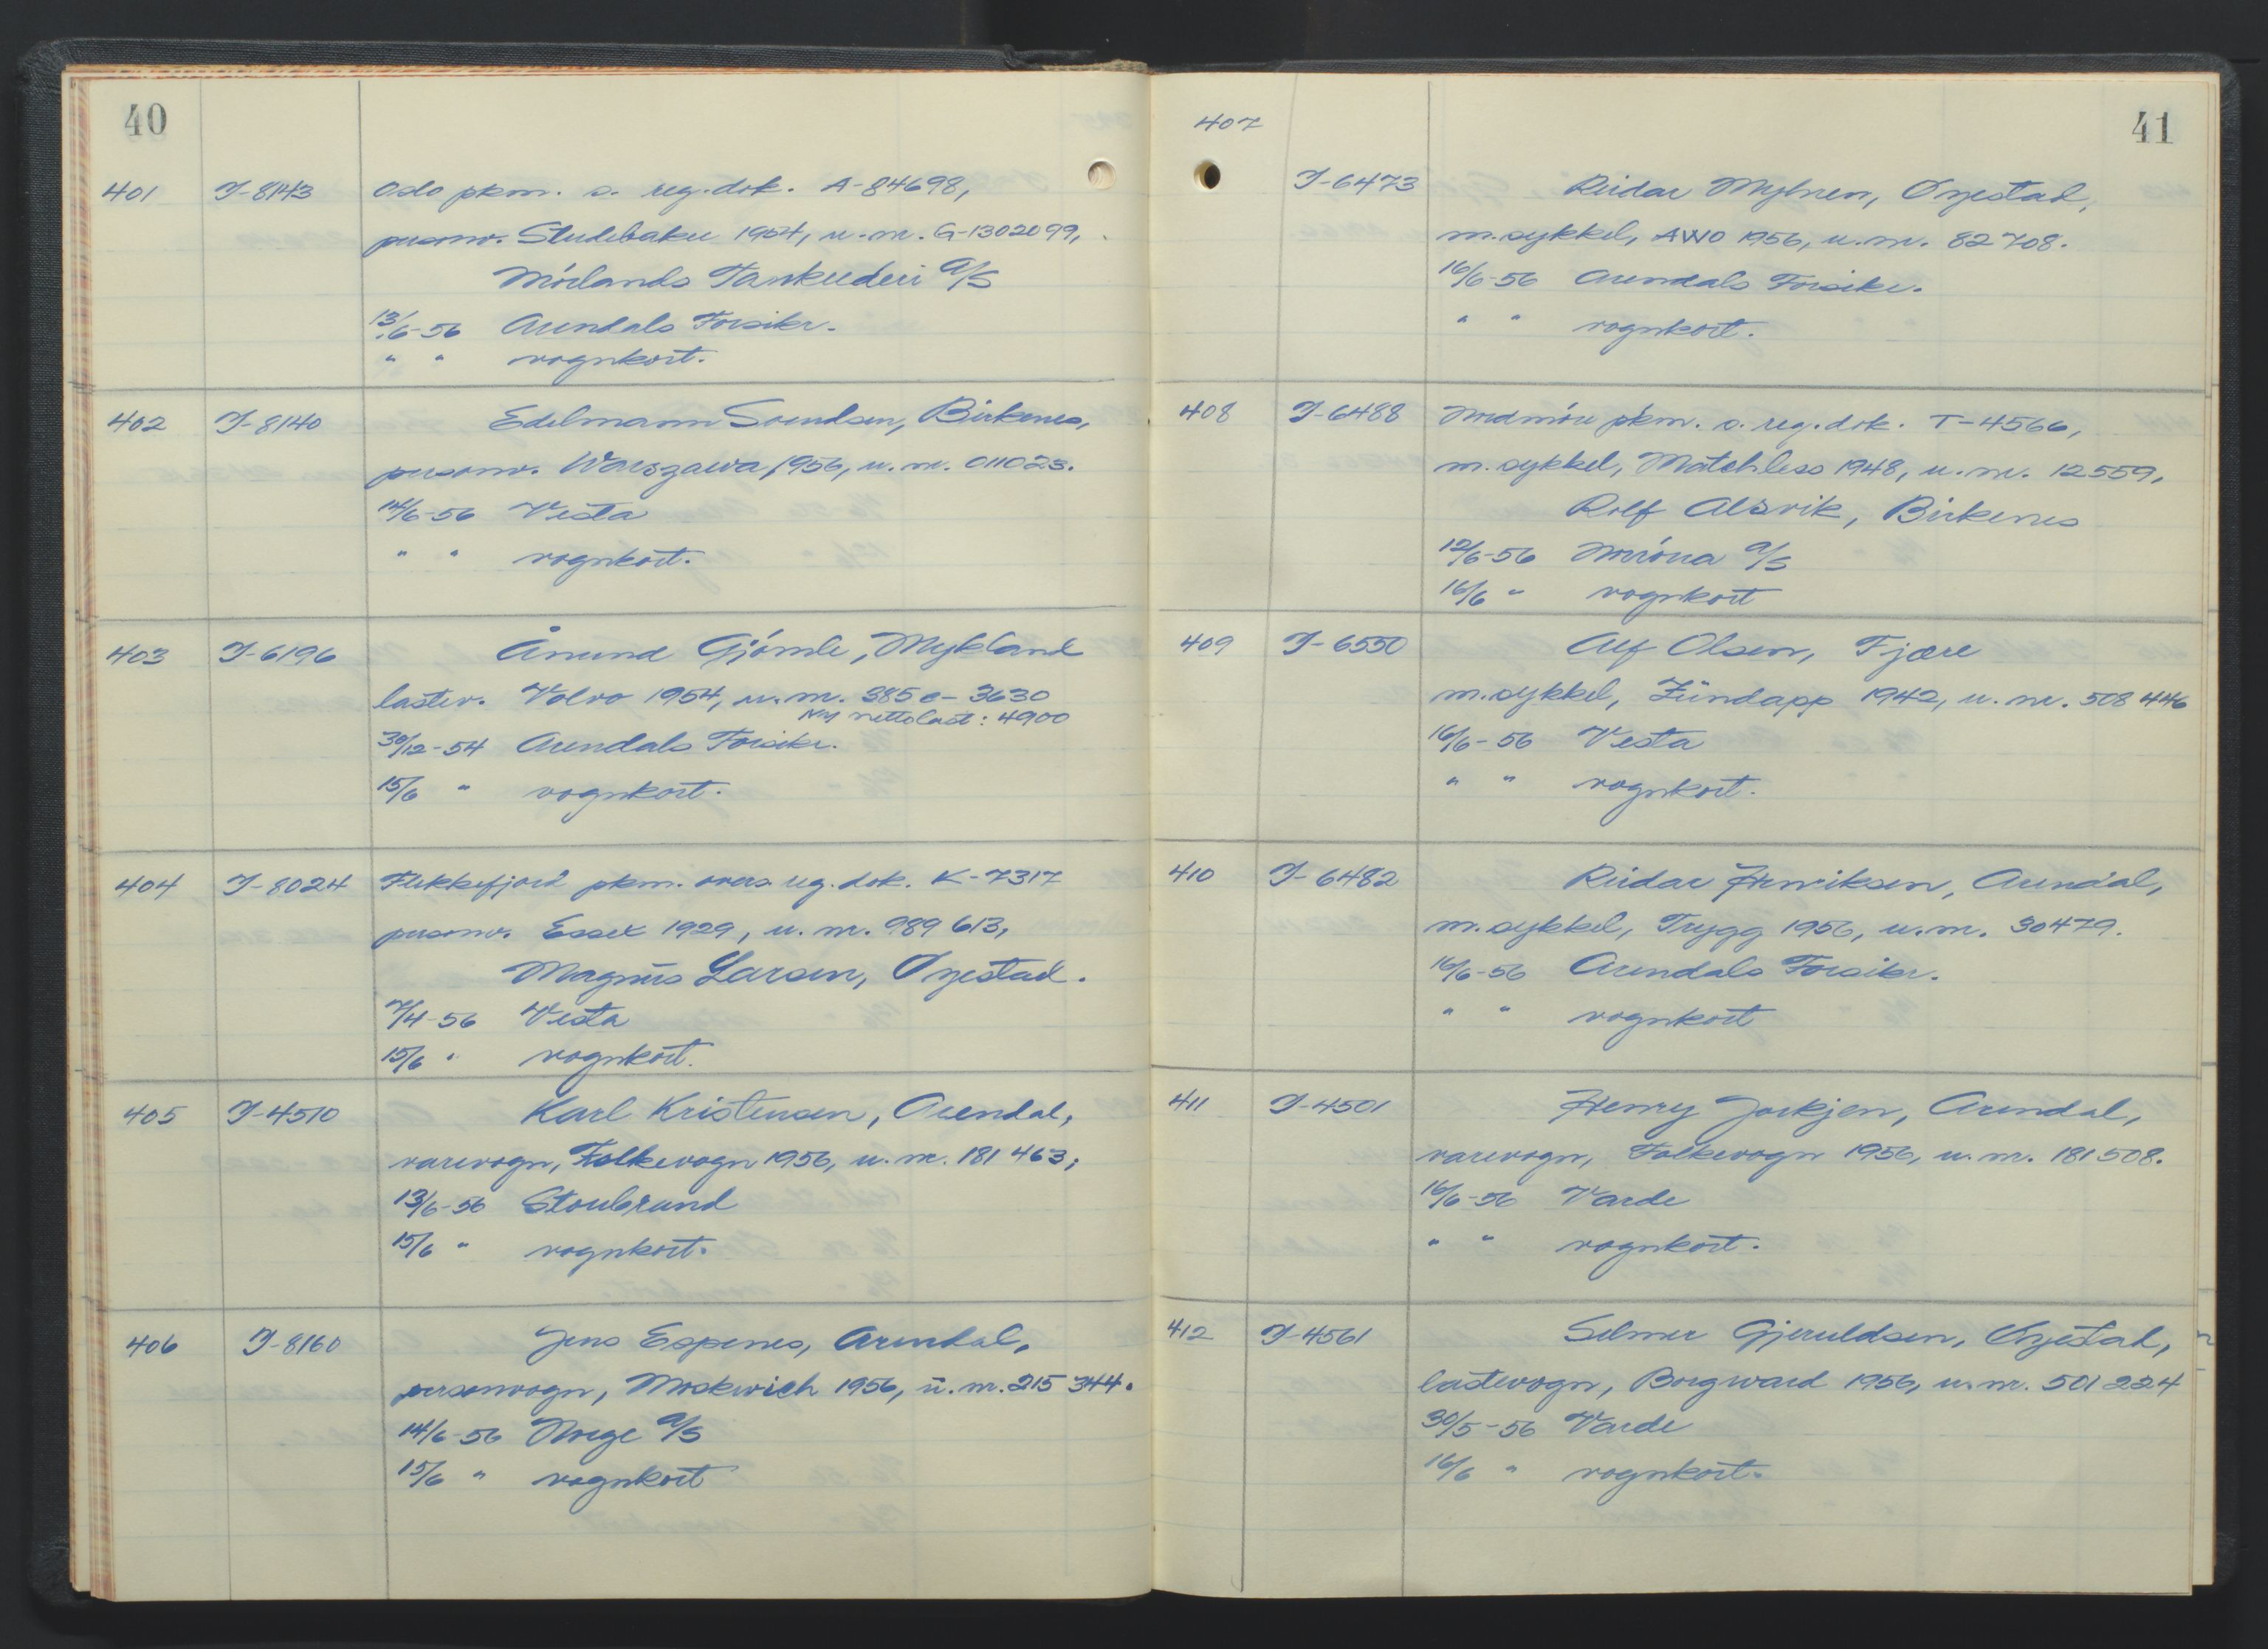 40
401 I-8143 Oslo pkm. s. reg.dok. A-84698,
personv. Studebaker 1954, u.nr. G-1302099,
Mörlands Tankrederi A/S
13/6-56 Arendals Forsikr.
" " vognkort.
402 I-8140 Edelmann Svendsen, Birkenes,
personv. Warszawa 1956, u.nr. 011023.
14/6-56 Vesta
" " vognkort.
403 I-6196 Ånund Gjömle, Mykland
lastev. Volvo 1954, u.nr. 385 e- 3630
Ny nettolast: 4900
30/12-54 Arendals Forsikr.
15/6 " vognkort.
404 I-8024 Flekkefjord pkm. overs. reg.dok. K-7317
personv. Essex 1929, u.nr. 989 613,
Magnus Larsen, Öyestad.
7/4-56 Vesta
15/6 " vognkort.
405 I-4510 Karl Kristensen, Arendal,
varevogn, Folkevogn 1956, u.nr. 181 463;
13/6-56 Storebrand
15/6 " vognkort.
406 I-8160 Jens Espenes, Arendal,
personvogn, Moskwich 1956, u.nr. 215 344.
14/6-56 Norge A/S
15/6 " vognkort
41
407 I-6473 Reidar Myhren, Öyestad,
m.sykkel, AWO 1956, u.nr. 82 708.
16/6-56 Arendals Forsikr.
" " vognkort.
408 I-6488 Nordmöre pkm. s. reg.dok. T-4566,
m.sykkel, Matchless 1948, u.nr. 12559,
Rolf Alsvik, Birkenes
12/6-56 Norröna A/S
16/6 " vognkort
409 I-6550 Alf Olsen, Fjære
m.sykkel, Zündapp 1942, u.nr. 508 446
16/6-56 Vesta
" " vognkort.
410 I-6482 Reidar Henriksen, Arendal,
m.sykkel, Trygg 1956, u.nr. 30479.
16/6-56 Arendals Forsikr.
" " vognkort
411 I-4501 Henry Jorkjen, Arendal,
varevogn, Folkevogn 1956, u.nr. 181508.
16/6-56 Varde
" " vognkort.
412 I-4561 Selmer Gjeruldsen, Öyestad,
lastevogn, Borgward 1956, u.nr. 501 224
30/5-56 Varde
16/6 " vognkort.